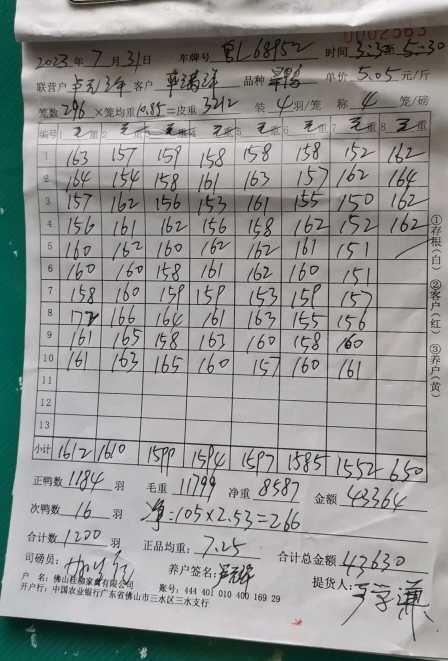 0002563
2023年7月31日 车牌号 粤L68952 时间 3:3至5:30
联营户 客户 品种 单价 5.05元/斤
笼数 296 ×笼均重10.85=皮重 3212 装 4 羽/笼 称 4 笼/磅
编号 1 毛重 2 毛重 3 毛重 4 毛重 5 毛重 6 毛重 7 毛重 8 毛重
1 163 157 159 158 158 158 152 162
2 164 154 158 161 163 157 162 164
3 157 162 156 153 161 155 150 162
4 156 161 162 156 158 162 152 162
5 160 162 160 162 162 161 151
6 160 160 158 161 162 160 151
7 158 160 159 159 153 159 157
8 172 166 164 161 163 155 156
9 161 165 158 163 160 158 160
10 161 163 165 160 157 160 161
11
12
13
小计 1612 1610 1599 1594 1597 1585 1552 650
正鸭数 1184 羽 毛重 11799 净重 8587 金额 43364
次鸭数 16 羽 净:105×2.53=266
合计数 1200 羽 正品均重: 7.25 合计总金额 43630
司磅员: 养户签名: 提货人:
户 名:佛山桂柳家禽有限公司 账号:444 401 010 400 169 29
开户行:中国农业银行广东省佛山市三水区三水支行
①存根(白) ②客户(红) ③养户(黄)